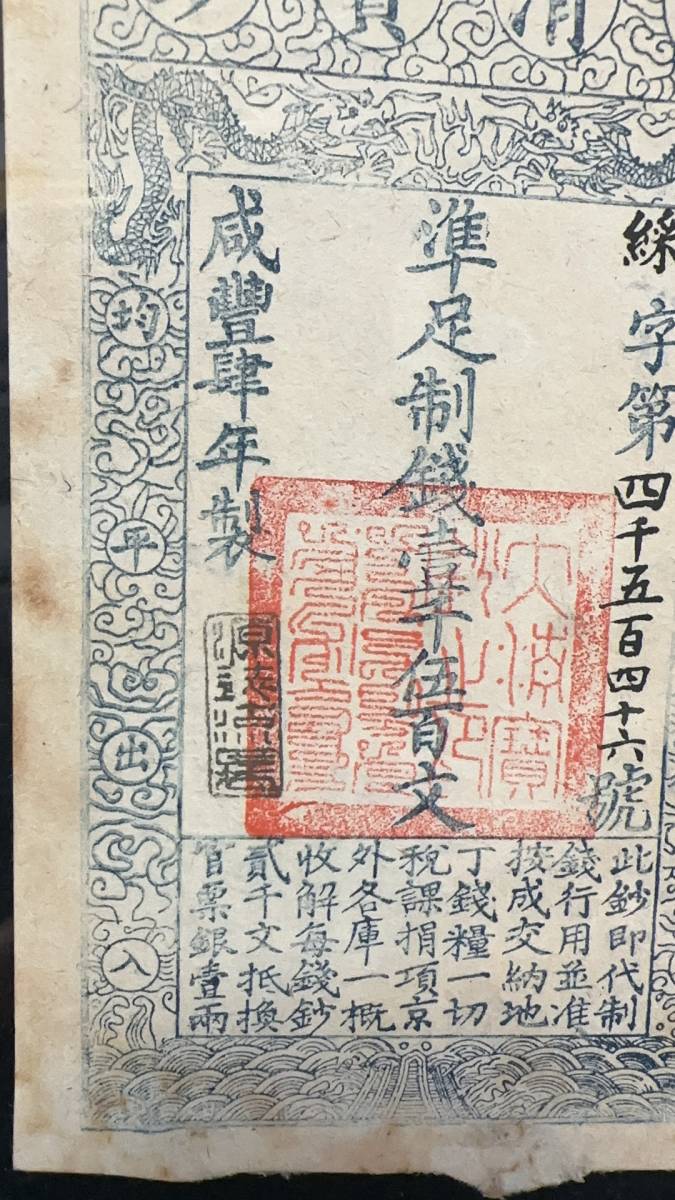 清寶鈔
綵字第四千五百四十六號
準足制錢壹千伍百文
咸豐肆年製
大清寶
鈔之印
此鈔即代制
錢行用並准
按成交納地
丁錢糧一切
稅課捐項京
外各庫一概
收解每錢鈔
貳千文抵換
官票銀壹兩
均平出入